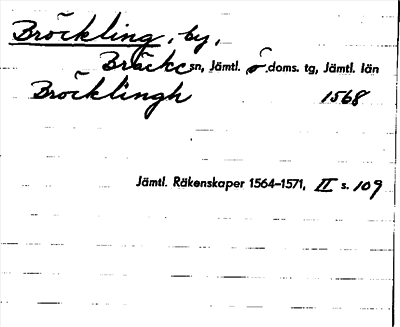 Bröckling, by,
Bräcke sn, Jämtl. ö. doms. tg, Jämtl. län
Bröcklingh 1568
Jämtl. Räkenskaper 1564–1571, II s. 109